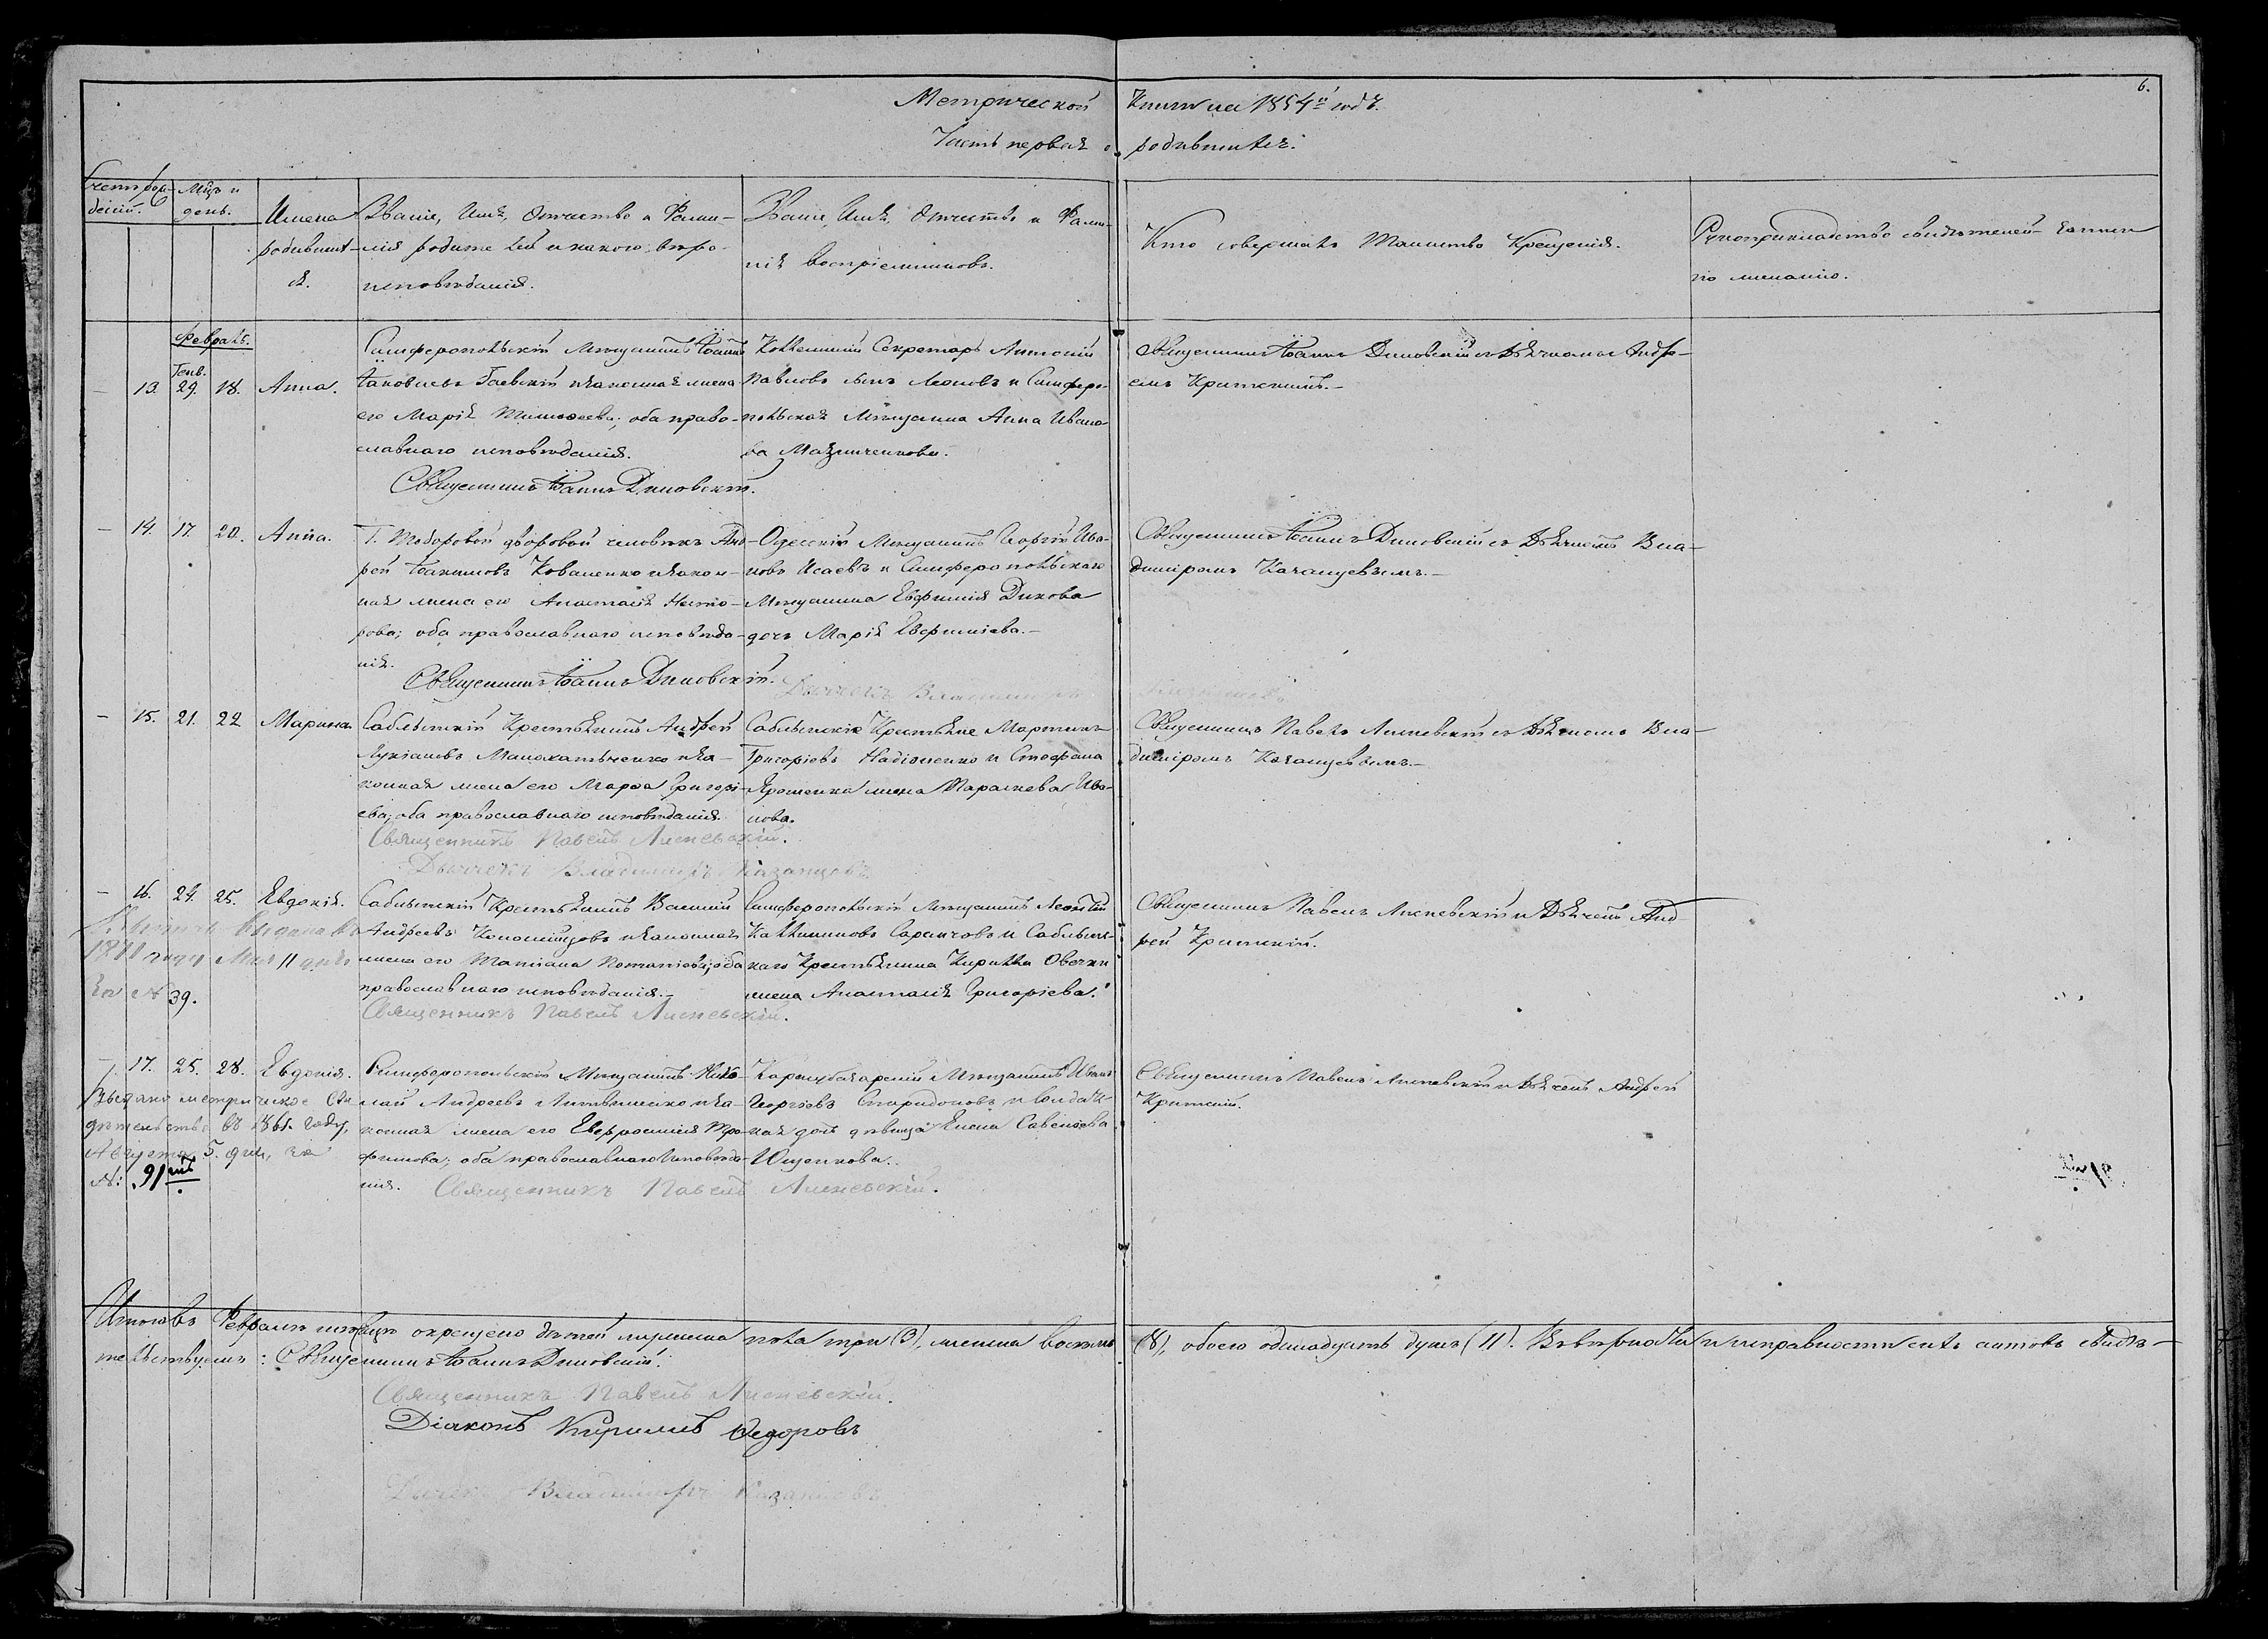 6.
Метрической Книги на 1854й годъ.
Часть первая о родившихся.
Счетъ рож-
деній.
Мцъ и
день.
Имена
родивших-
ся.
Званіе, Имя, Отчество и Фами-
лія родителей и какого вѣро-
исповѣданія.
Званіе, Имя, Отчество и Фами-
лія воспріемниковъ.
Кто совершалъ Таинство Крещенія.
Рукоприкладство свидѣтелей
по желанію.
Февраль.
Генв.
13. 29. 18. Анна.
Симферопольскій Мѣщанинъ Іоаннъ
Іаковлевъ Гаевскій и законная жена
его Марія Тимоѳеева; оба право-
славнаго исповѣданія.
Священникъ Іоаннъ Диковскій.
Коллежскій Секретарь Антоній
Павловъ сынъ Леоновъ и Симферо-
польская Мѣщанка Анна Ивано-
ва
Священникъ Іоаннъ Диковскій съ Дьячкомъ Андре-
емъ Критскимъ.
— 14. 17. 20. Анна.
Г. дворовой человѣкъ Анд-
рей Іоакимовъ Коваленко и закон-
ная жена его Анастасія
оба православнаго исповѣда-
нія.
Священникъ Іоаннъ Диковскій.
Одесскій Мѣщанинъ Георгій Ива-
новъ Исаевъ и Симферопольскаго
Мѣщанина Евфимія Дикова
дочь Марія Евфиміева.
Священникъ Іоаннъ Диковскій съ Дьячкомъ Вла-
диміромъ Казанцевымъ.
Дьячекъ Владиміръ Казанцевъ
— 15. 21. 22 Марина.
Саблынскій Крестьянинъ Андрей
Лукіановъ и за-
конная жена его Марѳа Григорі-
ева; оба православнаго исповѣданія.
Священникъ Павелъ Лисневскій.
Дьячекъ Владиміръ Казанцевъ
Саблынскіе Крестьяне Мартинъ
Григорьевъ и Стефана
Ярошенка жена Параскева Ива-
нова.
Священникъ Павелъ Лисневскій съ Дьячкомъ Вла-
диміромъ Казанцевымъ.
— 16. 24. 25. Евдокія.
выдана въ
года Мая 11 дня
за № 39.
Саблынскій Крестьянинъ Василій
Андреевъ Коломійцовъ и законная
жена его Татіана оба
православнаго исповѣданія.
Священникъ Павелъ Лисневскій.
Симферопольскій Мѣщанинъ Леонтій
Каллиниковъ и Саблын-
скаго Крестьянина Кирилла
жена Анастасія Григорьева.
Священникъ Павелъ Лисневскій и Дьячекъ Анд-
рей Критскій.
— 17. 25. 28. Евдокія.
Выдано метрическое сви-
дѣтельство въ 1861. году,
Августа 5. дня, за
№: 91мъ
Симферопольскій Мѣщанинъ Нико-
лай Андреевъ Литвиненко и за-
конная жена его Евфросинія Тро-
фимова; оба православнаго исповѣда-
нія.
Священникъ Павелъ Лисневскій.
Карасубазарскій Мѣщанинъ Иванъ
Георгіевъ Спиридоновъ и солдатс-
кая дочь дѣвица Елена Савельева
Ющенкова.
Священникъ Павелъ Лисневскій и Дьячекъ Андрей
Критскій.
Итого въ Февралѣ мѣсяцѣ окрещено дѣтей мужеска пола три (3), женска восемь (8), обоего одинадцать душъ (11). Въ вѣрности и исправности сихъ актовъ свидѣ-
тельствуемъ: Священникъ Іоаннъ Диковскій.
Священникъ Павелъ Лисневскій.
Діаконъ Кириллъ Ѳедоровъ
Дьячекъ Владиміръ Казанцевъ